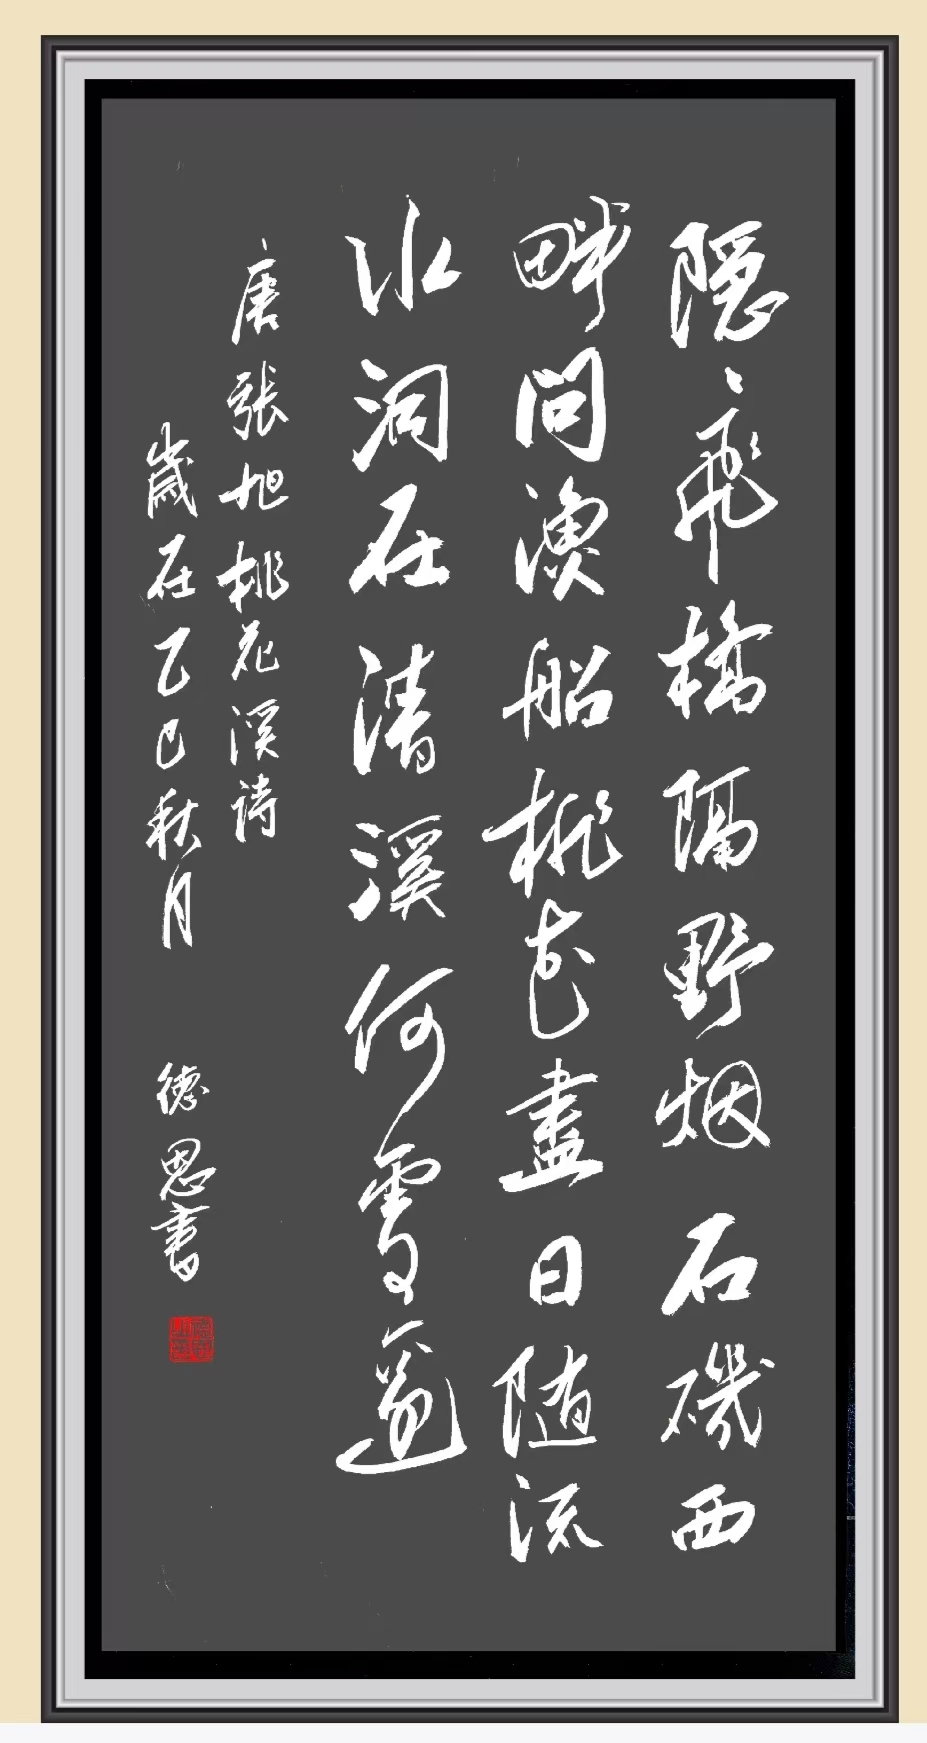 隐々飛橋隔野烟石磯西
畔問漁船桃花盡日随流
水洞在清溪何處邊
唐張旭桃花溪詩
歲在乙巳秋月 德思書